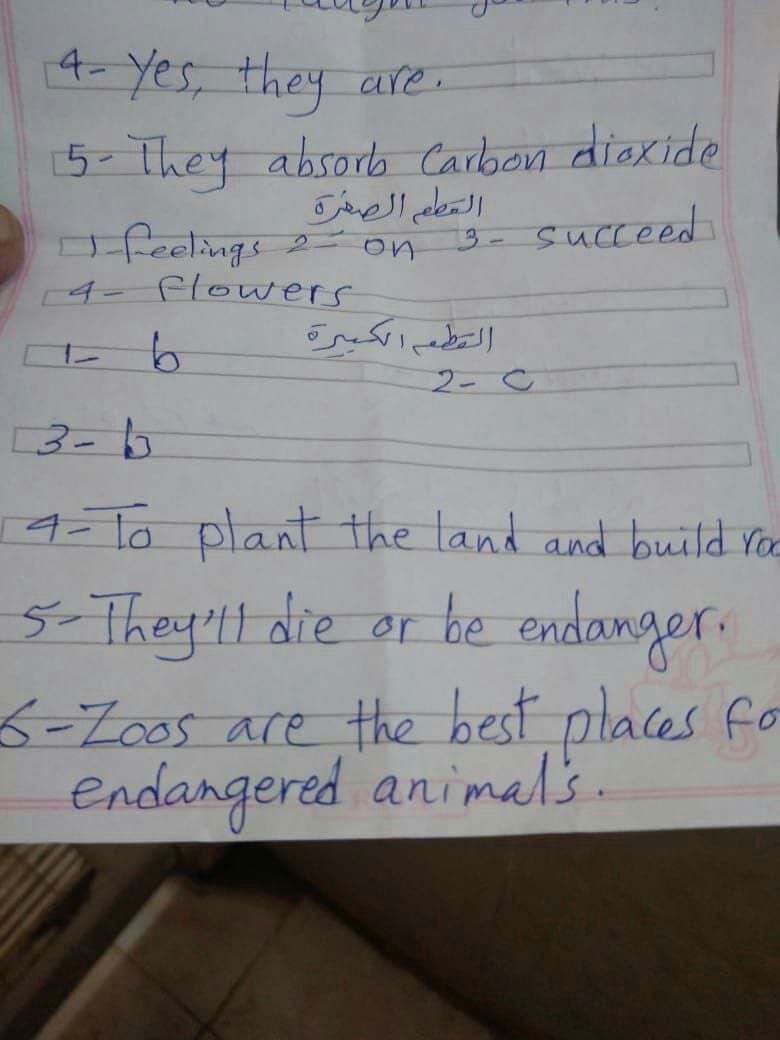 4- Yes, they are.
5- They absorb Carbon dioxide
القطع الصغيرة
1- feelings 2- on 3- succeed
4- flowers
القطع الكبيرة
1- b 2- c
3- b
4- To plant the land and build
5- They'll die or be endanger.
6- Zoos are the best places
endangered animals.